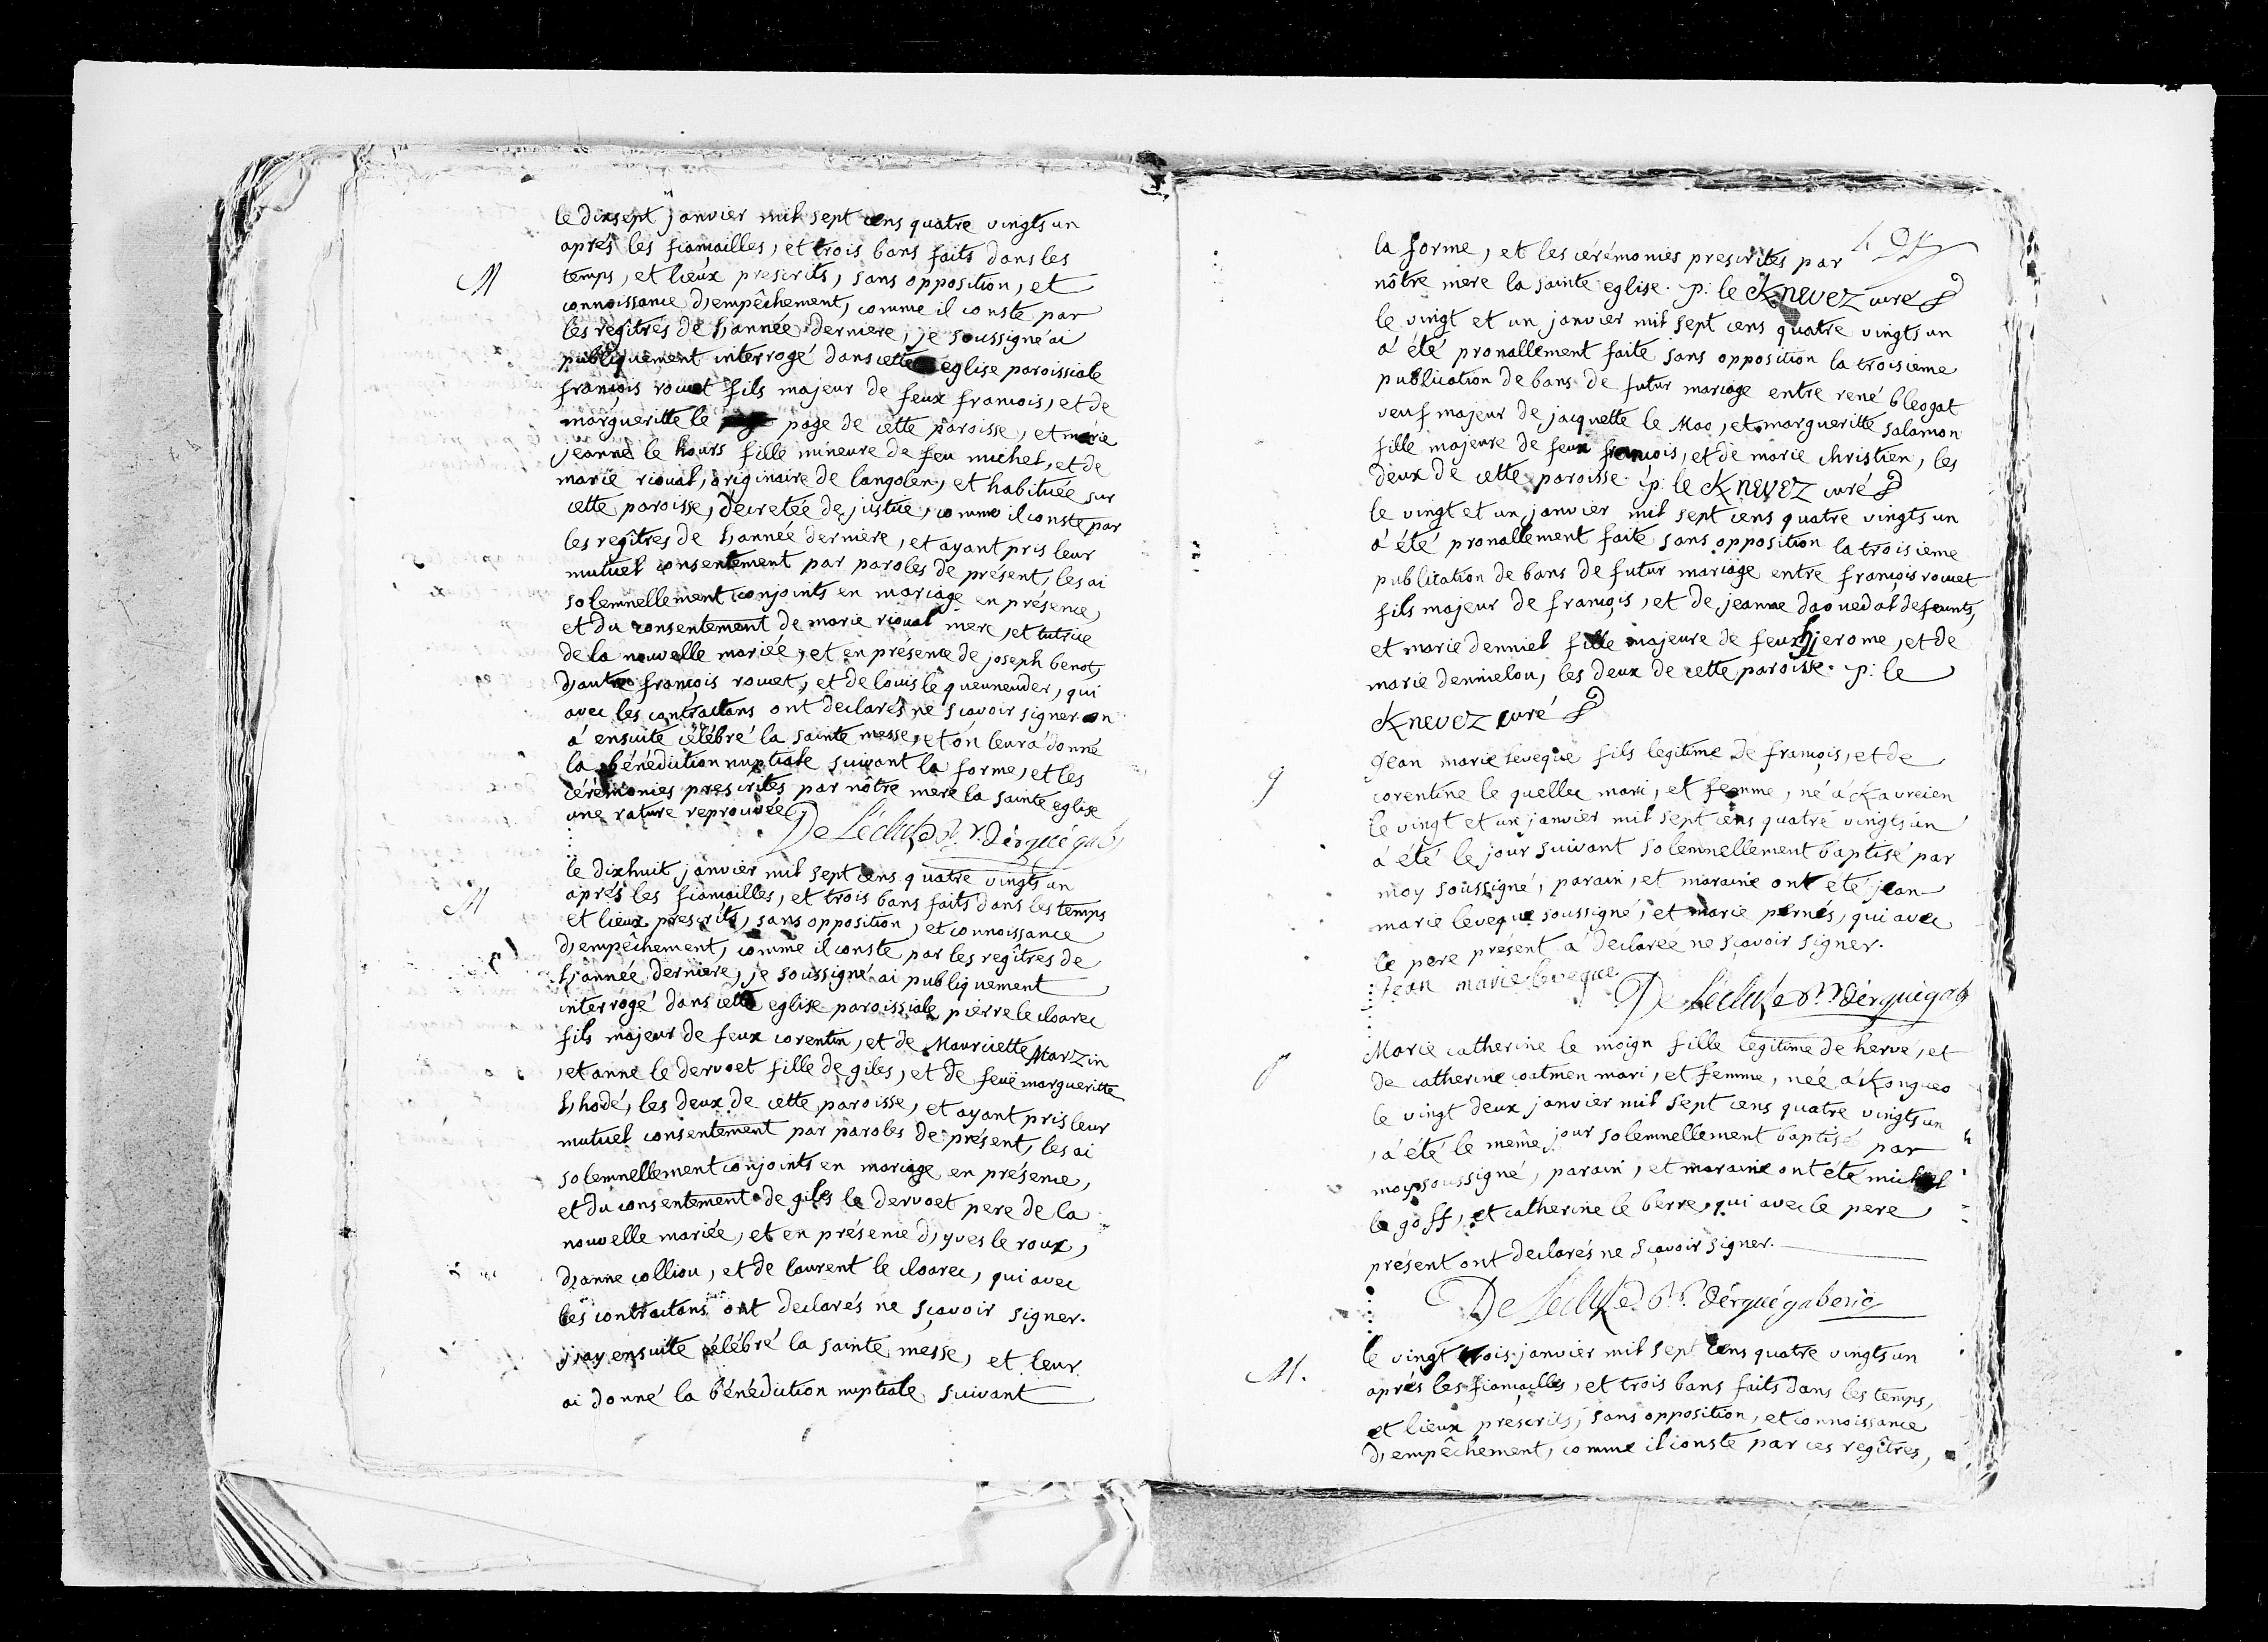 le dixsept janvier mil sept cens quatre vingts un
aprés les fiancailles, et trois bans faits dans les
M
temps, et lieux prescrits, sans opposition, et
connoissance d'empêchement, comme il conste par
les regîtres de l'année derniere, je soussigné ai
publiquement interrogé dans cette eglise paroissiale
françois rouet fils majeur de feux francois, et de
margueritte le page de cette paroisse, et marie
jeanne le hours fille mineure de feu michel, et de
marie rioual, originaire de langolen, et habituée sur
cette paroisse, decretée de justice, comme il conste par
les regîtres de l'année derniere, et ayant pris leur
mutuel consentement par paroles de présent, les ai
solemnellement conjoints en mariage en présence,
et du consentement de marie rioual mere, et tutrice
de la nouvelle mariée, et en présence de joseph benot,
d'autre françois rouet, et de louis le queuneuder, qui
avec les contractans ont declarés ne scavoir signer on
a ensuite célébré la sainte messe, et on leur a donné
la bénédiction nuptiale suivant la forme, et les
cérémonies prescrites par nôtre mere la sainte eglise
une rature reprouvée
De Lécluse Rr. dérguégab
le dixhuit janvier mil sept cens quatre vingts un
M
aprés les fiancailles, et trois bans faits dans les temps
et lieux prescrits, sans opposition, et connoissance
d'empêchement, comme il conste par les regîtres de
l'année derniere, je soussigné ai publiquement
interrogé dans cette eglise paroissiale pierre le cloarec
fils majeur de feux corentin, et de Mauricette Marzin
, et anne le dervoet fille de giles, et de feuë margueritte
l'hodé, les deux de cette paroisse, et ayant pris leur
mutuel consentement par paroles de présent, les ai
solemnellement conjoints en mariage en présence,
et du consentement de giles le dervoet pere de la
nouvelle mariée, et en présence d'yves le roux,
d'anne colliou, et de laurent le cloarec, qui avec
les contractans ont declarés ne sçavoir signer.
j'ay ensuite célébré la sainte messe, et leur
ai donné la bénédiction nuptiale suivant
la forme, et les cérémonies prescrites par
nôtre mere la sainte eglise. p: le Knevez curé
le vingt et un janvier mil sept cens quatre vingts un
a été pronallement faite sans opposition la troisieme
publication de bans de futur mariage entre rené bleogat
veuf majeur de jacquette le Mao, et margueritte salamon
fille majeure de feux francois, et de marie christien, les
deux de cette paroisse. p: le Knevez curé
le vingt et un janvier mil sept cens quatre vingts un
a été pronallement faite sans opposition la troisieme
publication de bans de futur mariage entre françois rouet
fils majeur de françois, et de jeanne daouedal defeunts,
et marie denniel fille majeure de feux hjerome, et de
marie dennielou, les deux de cette paroisse. p: le
Knevez curé
Jean marie leveque fils legitime de françois, et de
corentine le quellec mari, et femme, né a Kavreien
le vingt et un janvier mil sept cens quatre vingts un
a été le jour suivant solemnellement baptisé par
moy soussigné, parain, et maraine ont été jean
marie leveque soussigné, et marie pernés, qui avec
le pere présent a declareé ne sçavoir signer.
Jean marie leveque
De Lécluse Rr. dérguégab
Marie catherine le moign fille legitime de hervé, et
de catherine coatmen mari, et femme, née a Kongueo
le vingt deux janvier mil sept cens quatre vingts un
, a été le même jour solemnellement baptisé par
moy soussigné, parain, et maraine ont été michel
le goff, et catherine le berre, qui avec le pere
présent ont declarés ne sçavoir signer.
De Lécluse Rr. dérguégaberic
le vingt trois janvier mil sept cens quatre vingts un
M.
aprés les fiançailles, et trois bans faits dans les temps,
et lieux prescrits, sans opposition, et connoissance
d'empêchement, comme il conste par ces regîtres,